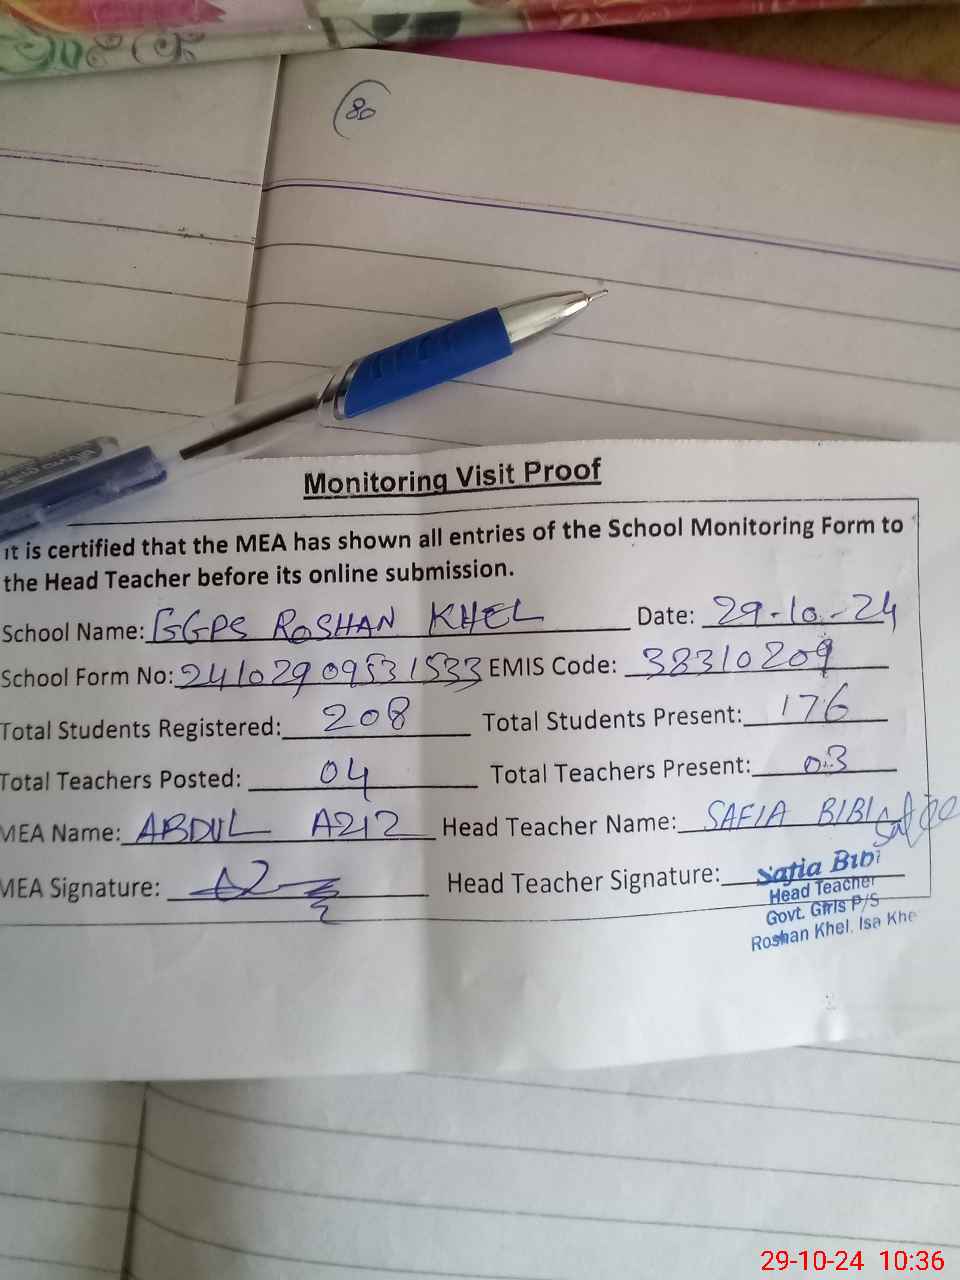 80
Monitoring Visit Proof
It is certified that the MEA has shown all entries of the School Monitoring Form to
the Head Teacher before its online submission.
School Name: GGPS ROSHAN KHEL Date: 29-10-24
School Form No: 24102909531533 EMIS Code: 38310209
Total Students Registered: 208 Total Students Present: 176
Total Teachers Posted: 04 Total Teachers Present: 03
MEA Name: ABDUL AZIZ Head Teacher Name: SAFIA BIBI
MEA Signature: Head Teacher Signature:
Safia Bibi
Head Teacher
Govt. Girls P/S
Roshan Khel. Isa Khe
29-10-24 10:36